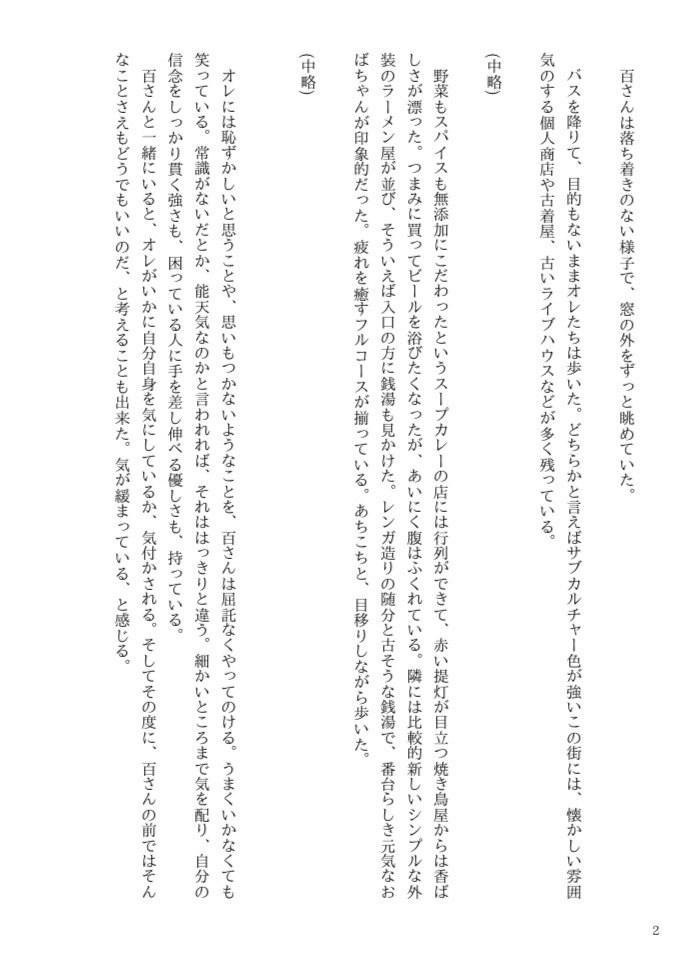 百さんは落ち着きのない様子で、窓の外をずっと眺めていた。
バスを降りて、目的もないままオレたちは歩いた。どちらかと言えばサブカルチャー色が強いこの街には、懐かしい雰囲
気のする個人商店や古着屋、古いライブハウスなどが多く残っている。
(中略)
野菜もスパイスも無添加にこだわったというスープカレーの店には行列ができて、赤い提灯が目立つ焼き鳥屋からは香ば
しさが漂った。つまみに買ってビールを浴びたくなったが、あいにく腹はふくれている。隣には比較的新しいシンプルな外
装のラーメン屋が並び、そういえば入口の方に銭湯も見かけた。レンガ造りの随分と古そうな銭湯で、番台らしき元気なお
ばちゃんが印象的だった。疲れを癒すフルコースが揃っている。あちこちと、目移りしながら歩いた。
(中略)
オレには恥ずかしいと思うことや、思いもつかないようなことを、百さんは屈託なくやってのける。うまくいかなくても
笑っている。常識がないだとか、能天気なのかと言われれば、それははっきりと違う。細かいところまで気を配り、自分の
信念をしっかり貫く強さも、困っている人に手を差し伸べる優しさも、持っている。
百さんと一緒にいると、オレがいかに自分自身を気にしているか、気付かされる。そしてその度に、百さんの前ではそん
なことさえもどうでもいいのだ、と考えることも出来た。気が緩まっている、と感じる。
2